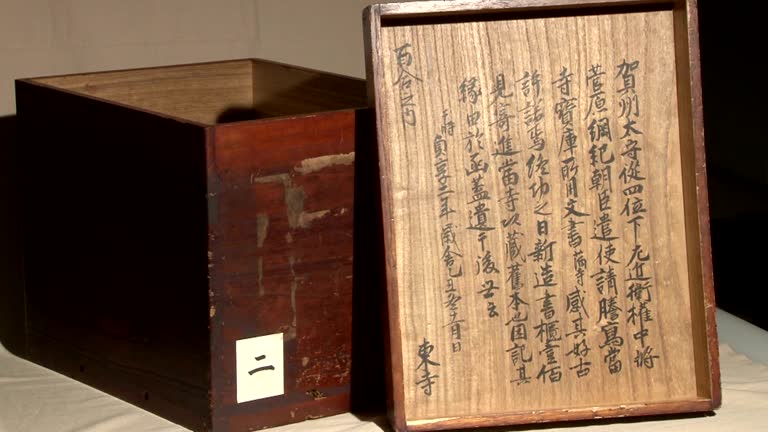 賀州太守從四位下左近衛權中將
菅原綱紀朝臣遣使請謄寫當
寺寶庫所有文書滿寺感其好古
許諾焉終功之日新造書櫃壹佰
見寄進當寺以藏舊本也因記其
緣由於函蓋遺于後世云
于時貞享二年歳舎乙丑冬十一月日
東寺
百合之内
二